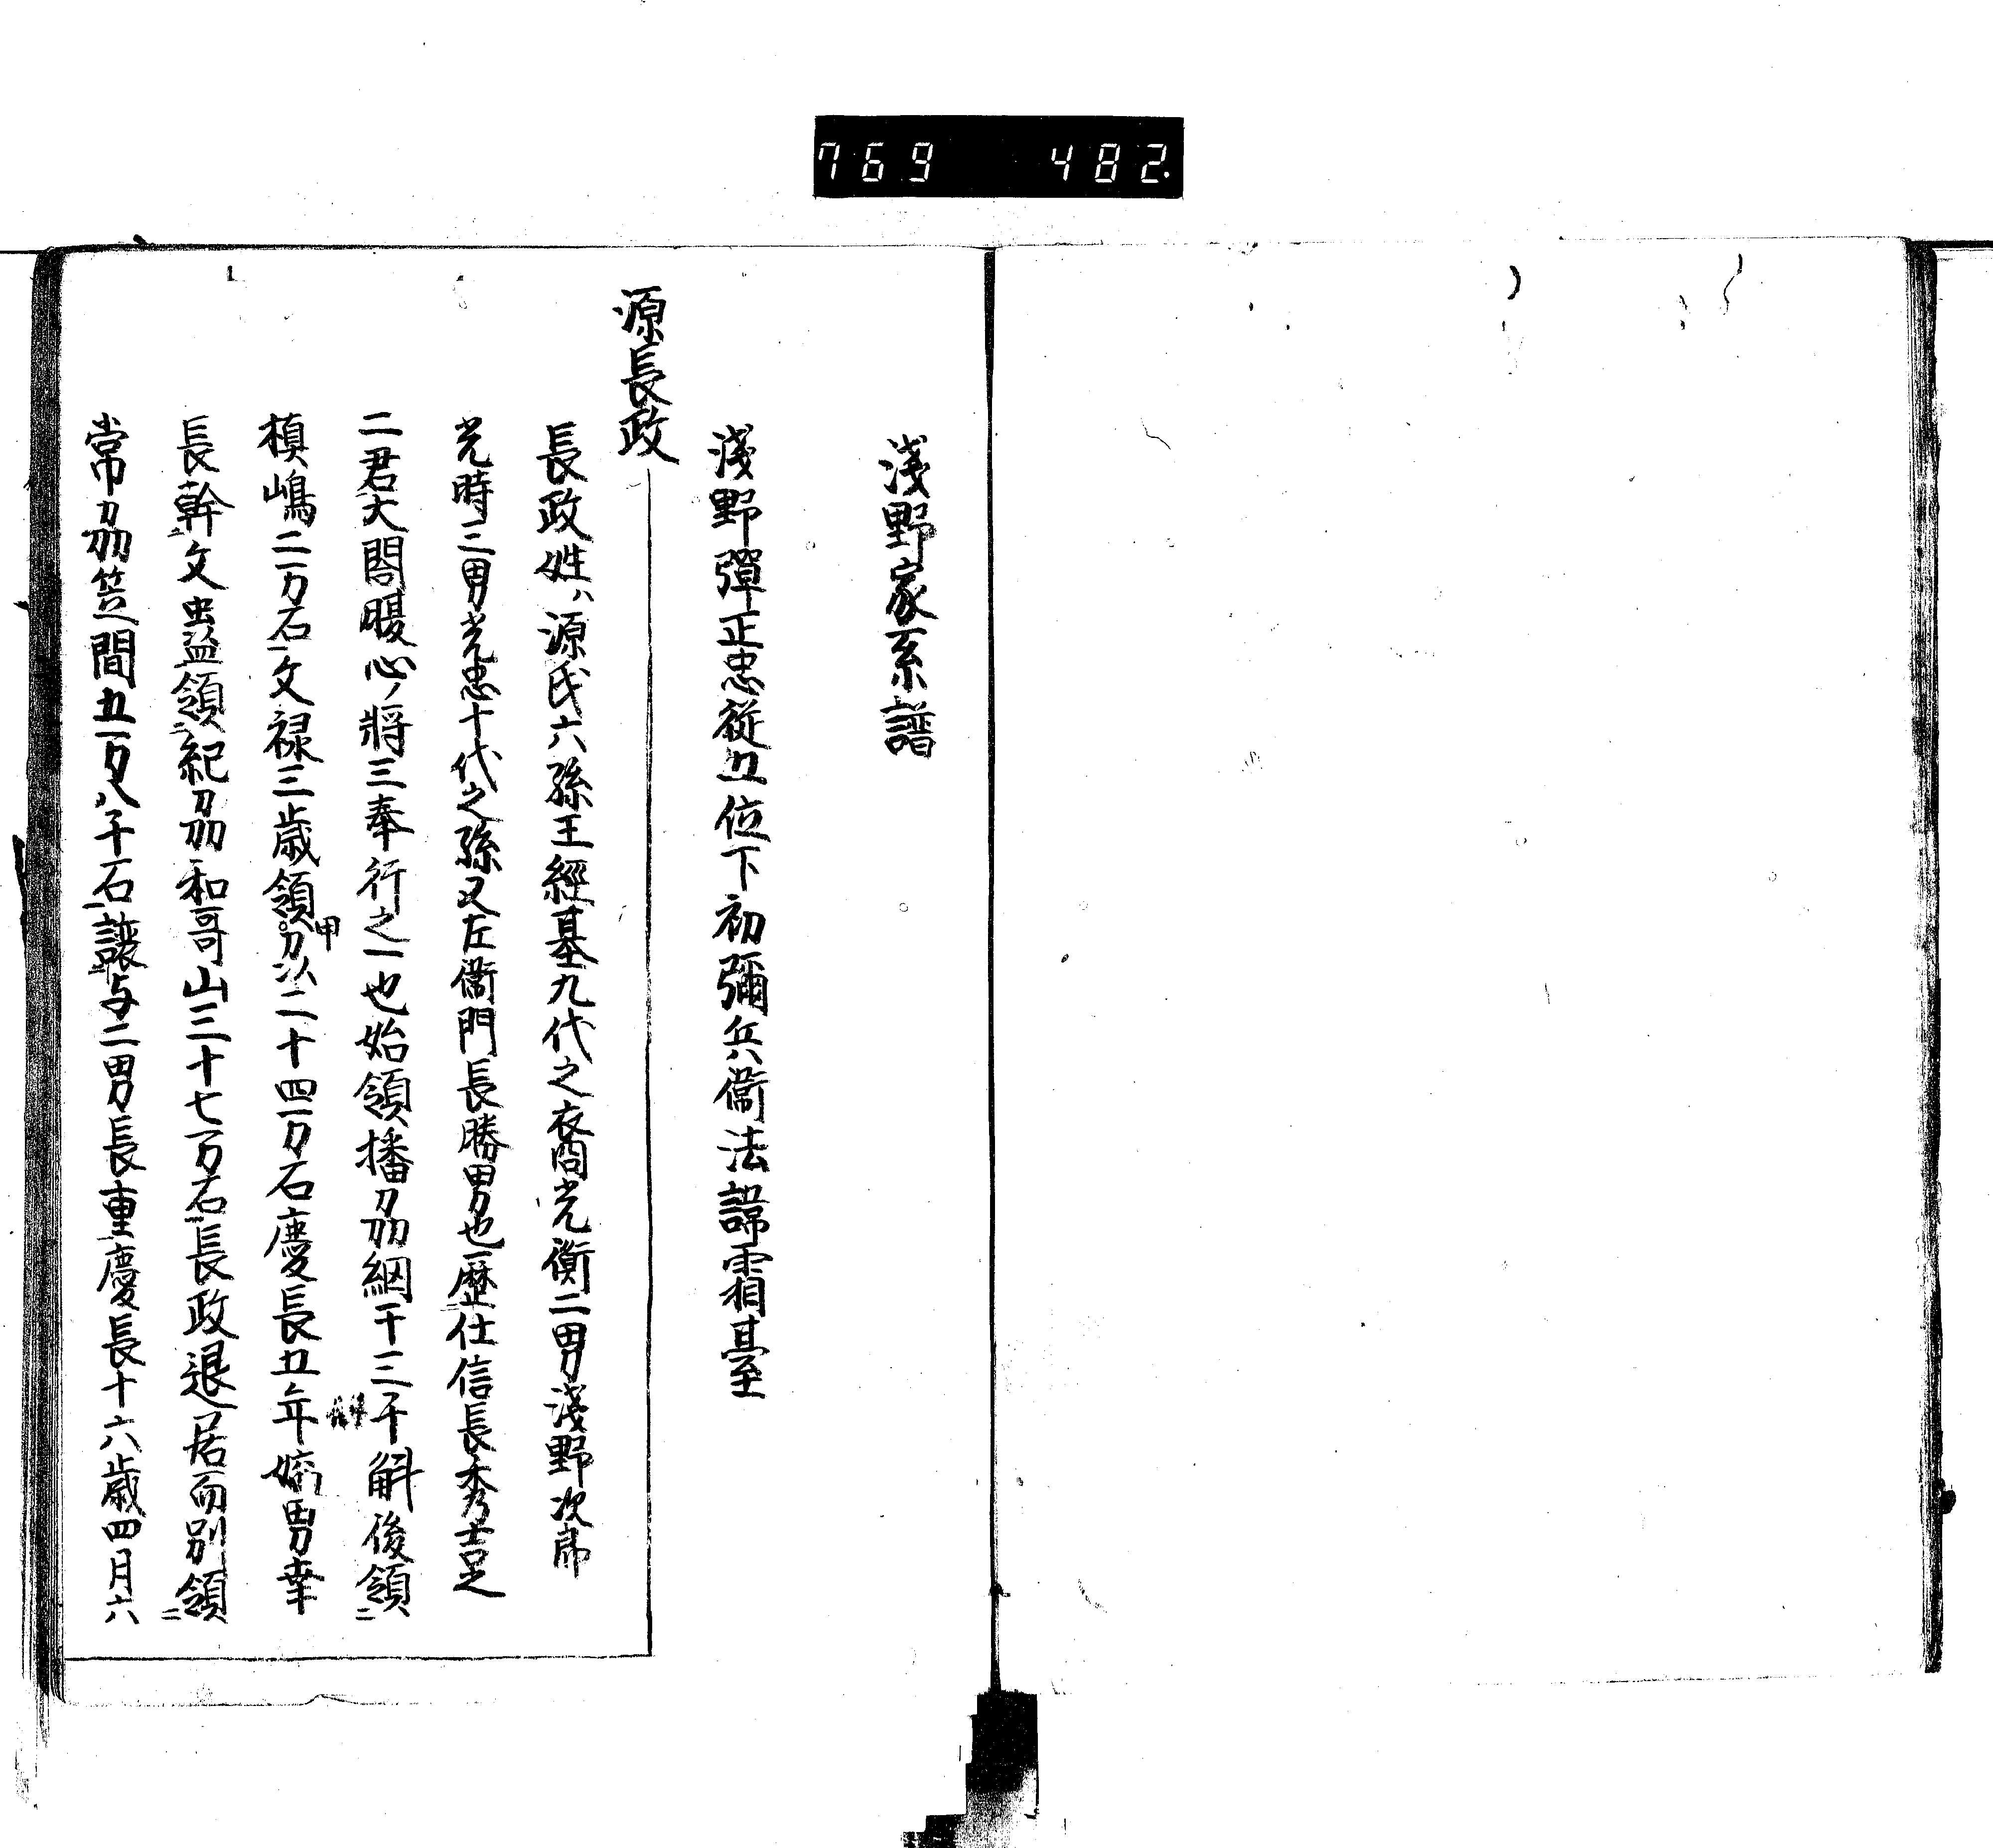 769 482.
淺野家系譜
淺野彈正忠從五位下初彌兵衞法諱霜臺
源長政
長政姓ハ源氏六孫王經基九代之裔光衡二男淺野次郎
光時二男光忠十代之孫又左衞門長勝男也歷仕信長秀吉之
二君大閤腹心ノ將三奉行之一也始領播刕網干三千斛後領二
槙嶋二万石一文禄三歳領甲刕二十四万石慶長五年嫡男幸
長幹二父蠱益領二紀刕和哥山三十七万石一長政退居而別領二
常刕笠間五万八千石一讓与二男長重慶長十六歳四月六